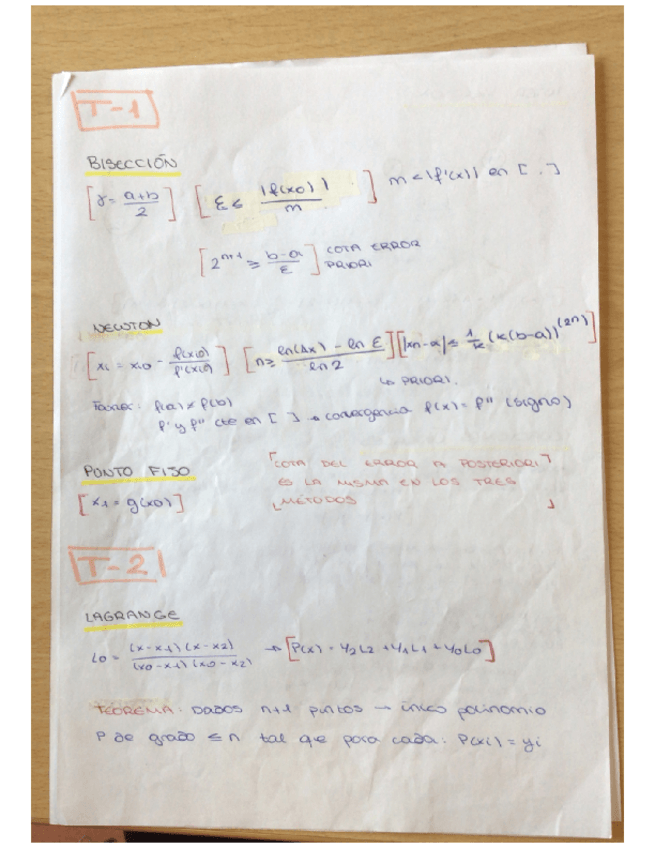 T-1
BISECCIÓN
[γ = a+b/2] [ε ≤ |f(x0)|/m] m < |f'(x)| en [ , ]
[2^n+1 ≥ b-a/ε] COTA ERROR PRIORI
NEWTON
[x1 = x0 - f(x0)/f'(x0)] [n ≥ ln(Δx) - ln ε/ln 2] [|xn-α| ≤ 1/k (k(b-a))^(2n)]
↳ PRIORI.
f(a) ≠ f(b)
f' y f'' cte en [ ] → convergencia f(x) = f'' (signo)
PUNTO FIJO
[x1 = g(x0)]
[COTA DEL ERROR A POSTERIORI
ES LA MISMA EN LOS TRES
MÉTODOS]
T-2
LAGRANGE
L0 = (x-x1)(x-x2)/(x0-x1)(x0-x2) → [P(x) = y2L2 + y1L1 + y0L0]
TEOREMA: Dados n+1 puntos → único polinomio
P de grado ≤ n tal que para cada: P(xi) = yi